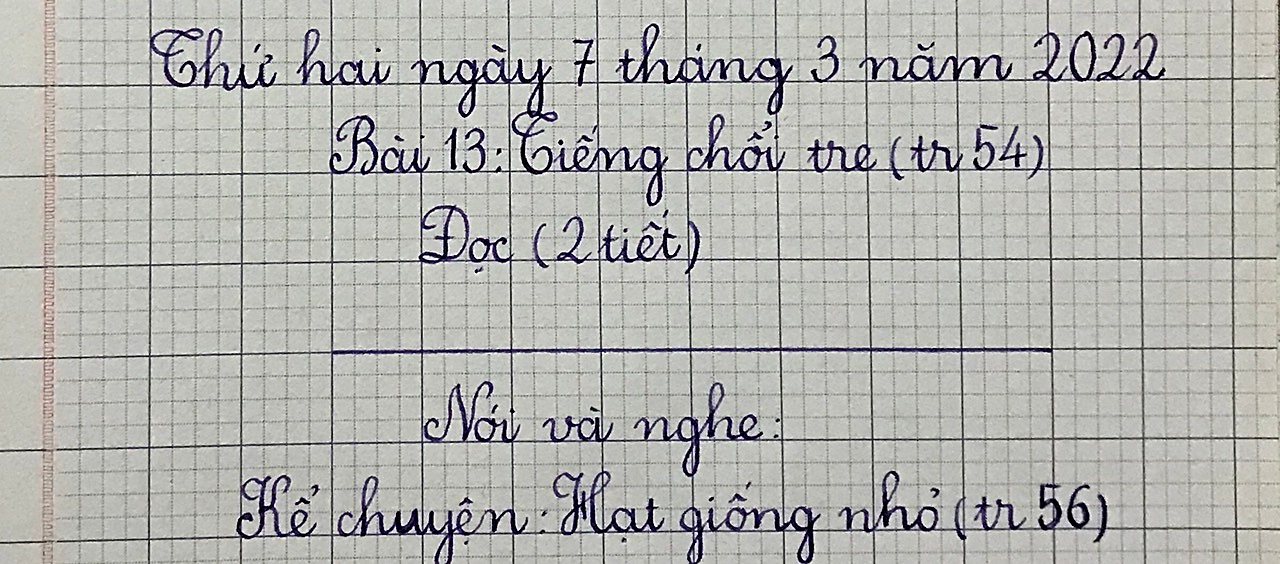 Thứ hai ngày 7 tháng 3 năm 2022
Bài 13: Tiếng chổi tre (tr 54)
Đọc (2 tiết)
Nói và nghe:
Kể chuyện: Hạt giống nhỏ (tr 56)